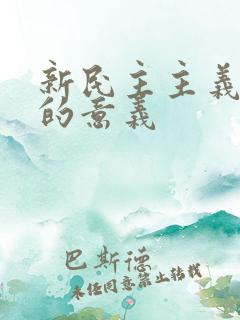 新民主主义
的意义
巴斯德
未经同意禁止转载